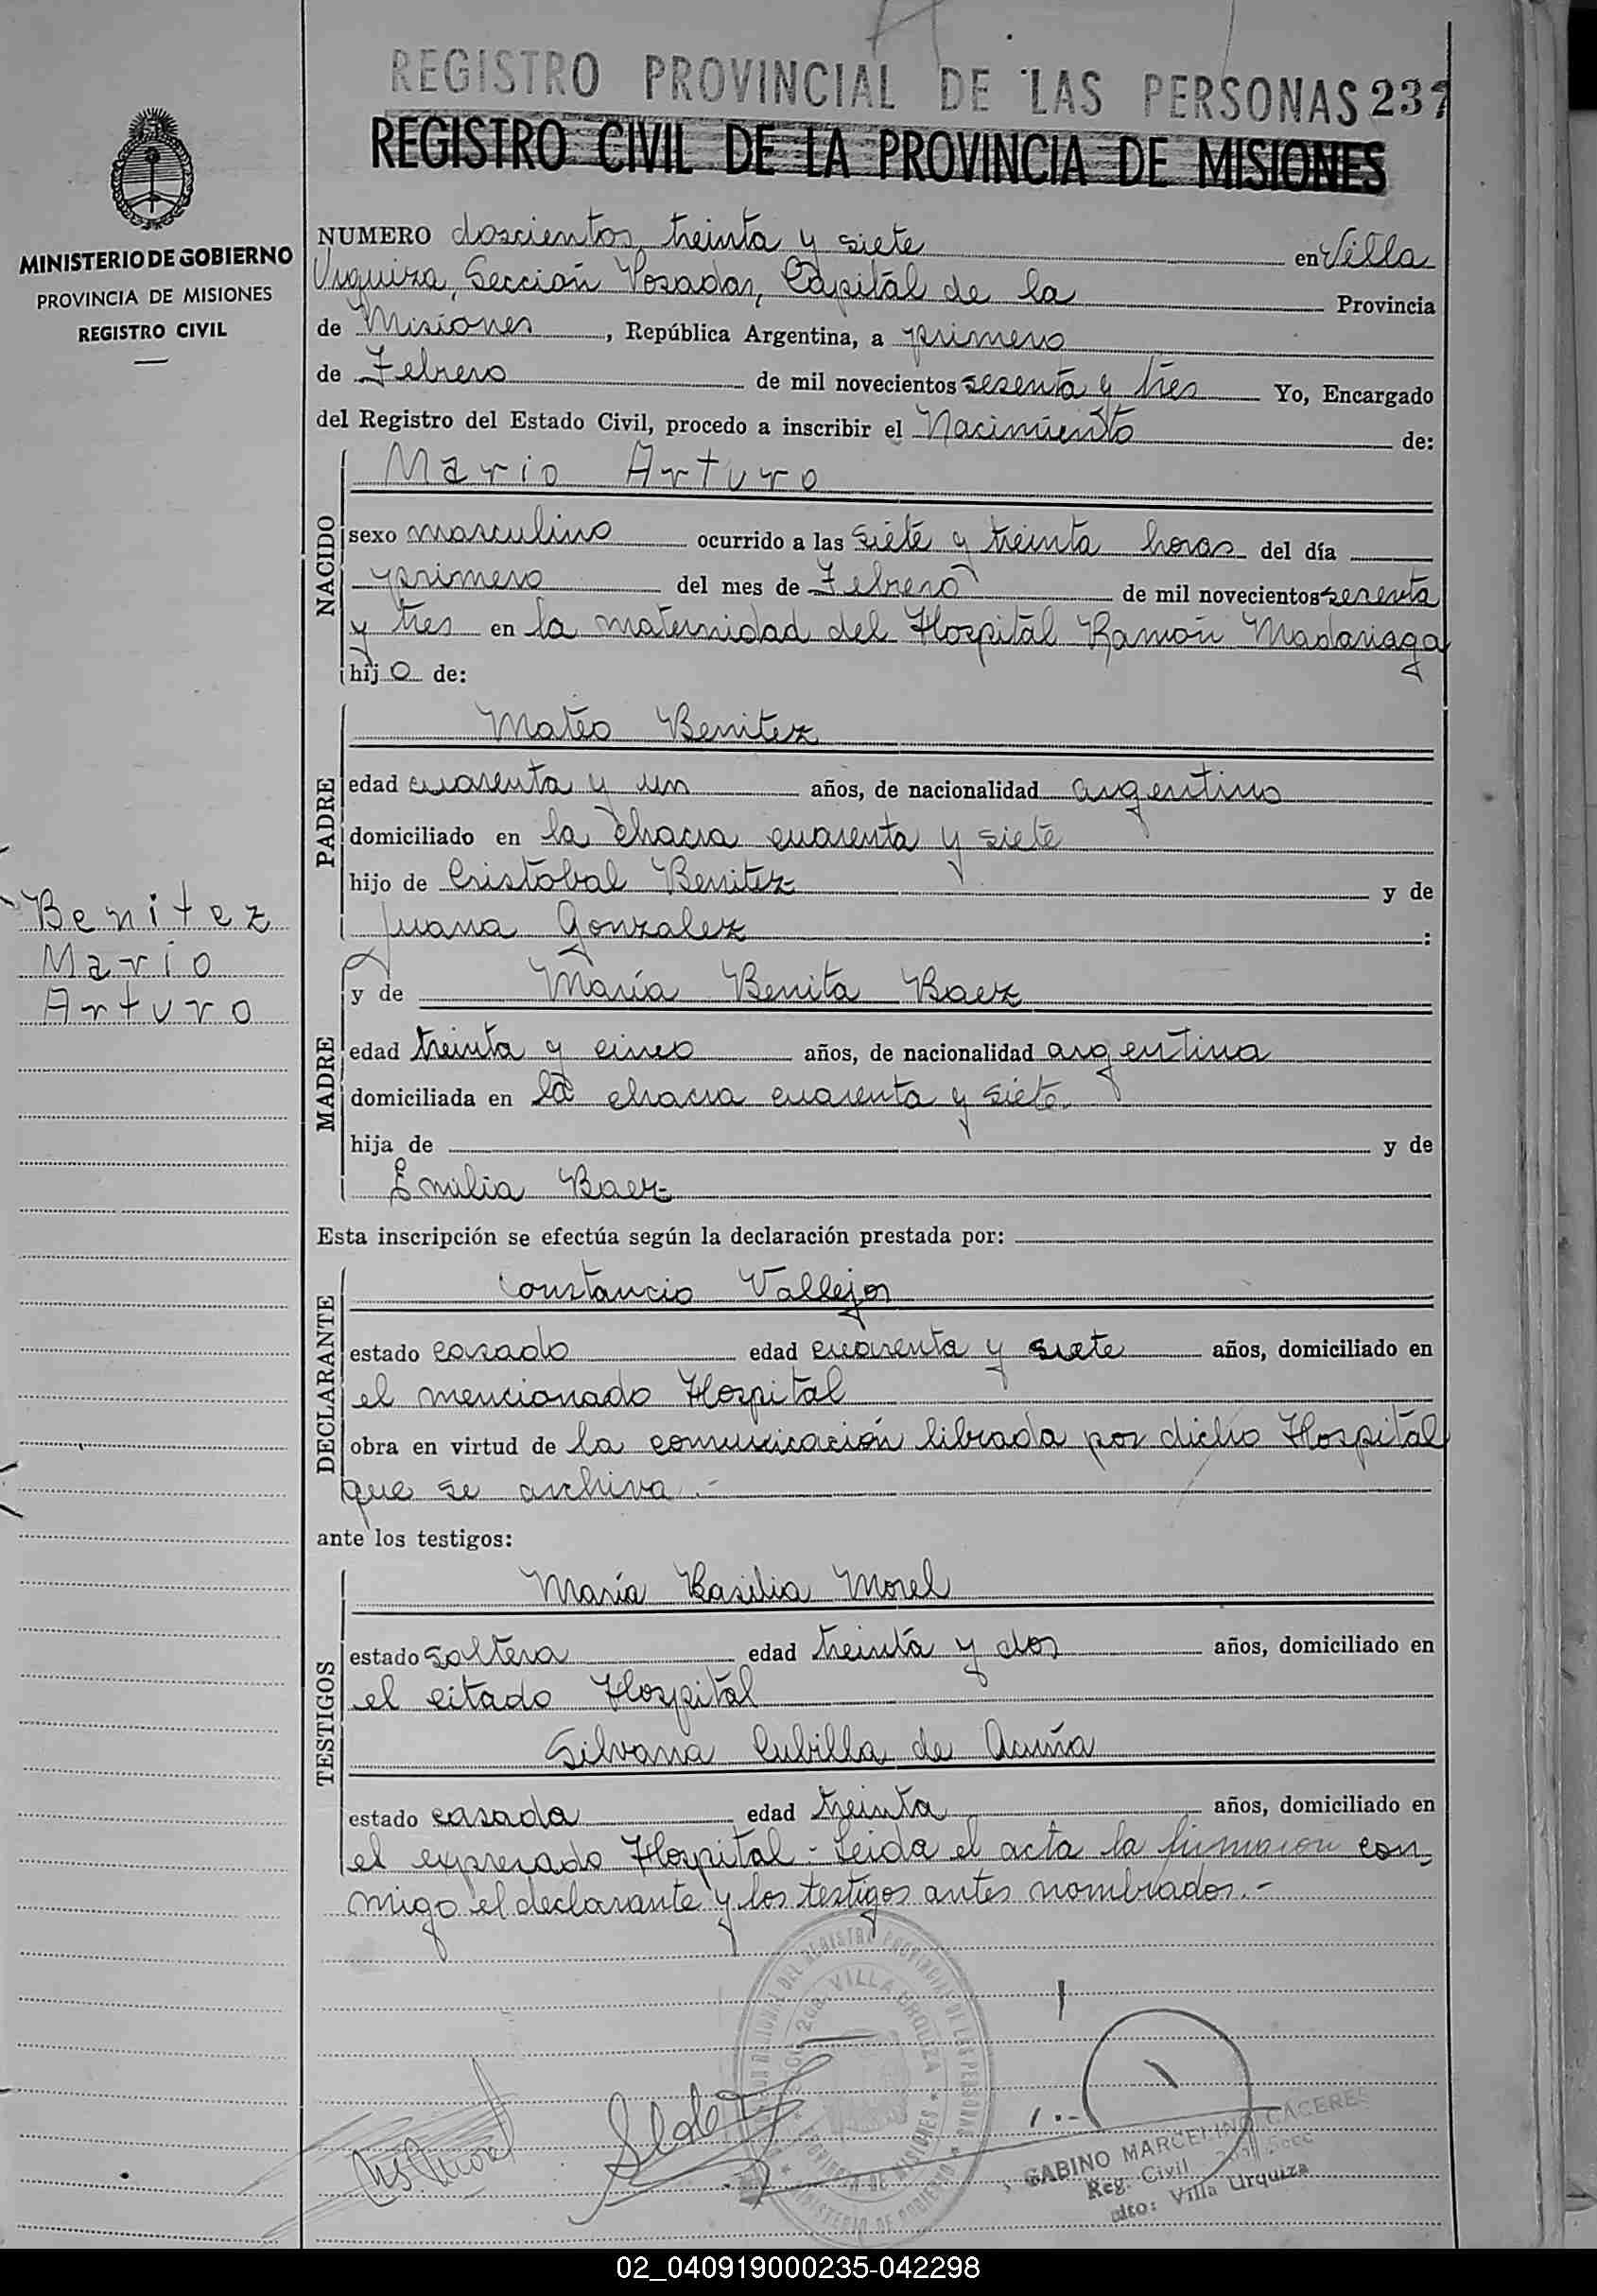 REGISTRO PROVINCIAL DE LAS PERSONAS 237
REGISTRO CIVIL DE LA PROVINCIA DE MISIONES
MINISTERIO DE GOBIERNO
PROVINCIA DE MISIONES
REGISTRO CIVIL
NUMERO doscientos treinta y siete en Villa
Urquiza, Sección Posadas, Capital de la Provincia
de Misiones, República Argentina, a primero
de Febrero de mil novecientos sesenta y tres Yo, Encargado
del Registro del Estado Civil, procedo a inscribir el Nacimiento de:
NACIDO
Mario Arturo
sexo masculino ocurrido a las siete y treinta horas del día
primero del mes de Febrero de mil novecientos sesenta
y tres en la maternidad del Hospital Ramón Madariaga
hijo de:
PADRE
Mateo Benitez
edad cuarenta y un años, de nacionalidad argentino
domiciliado en la chacra cuarenta y siete
hijo de Cristobal Benitez y de
Juana Gonzalez :
Benitez
Mario
Arturo
MADRE
y de María Benita Baez
edad treinta y cinco años, de nacionalidad argentina
domiciliada en la chacra cuarenta y siete
hija de y de
Emilia Baez
Esta inscripción se efectúa según la declaración prestada por:
DECLARANTE
Constancio Vallejos
estado casado edad cuarenta y siete años, domiciliado en
el mencionado Hospital
obra en virtud de la comunicación librada por dicho Hospital
que se archiva.-
ante los testigos:
TESTIGOS
María Basilia Morel
estado soltera edad treinta y dos años, domiciliado en
el citado Hospital
Silvana Cubilla de Acuña
estado casada edad treinta años, domiciliado en
el expresado Hospital - Leida el acta la firmaron con-
migo el declarante y los testigos antes nombrados.-
VILLA URQUIZA
PROVINCIA DE MISIONES
GABINO MARCELINO CACERES
Reg. Civil
Villa Urquiza
02_040919000235-042298